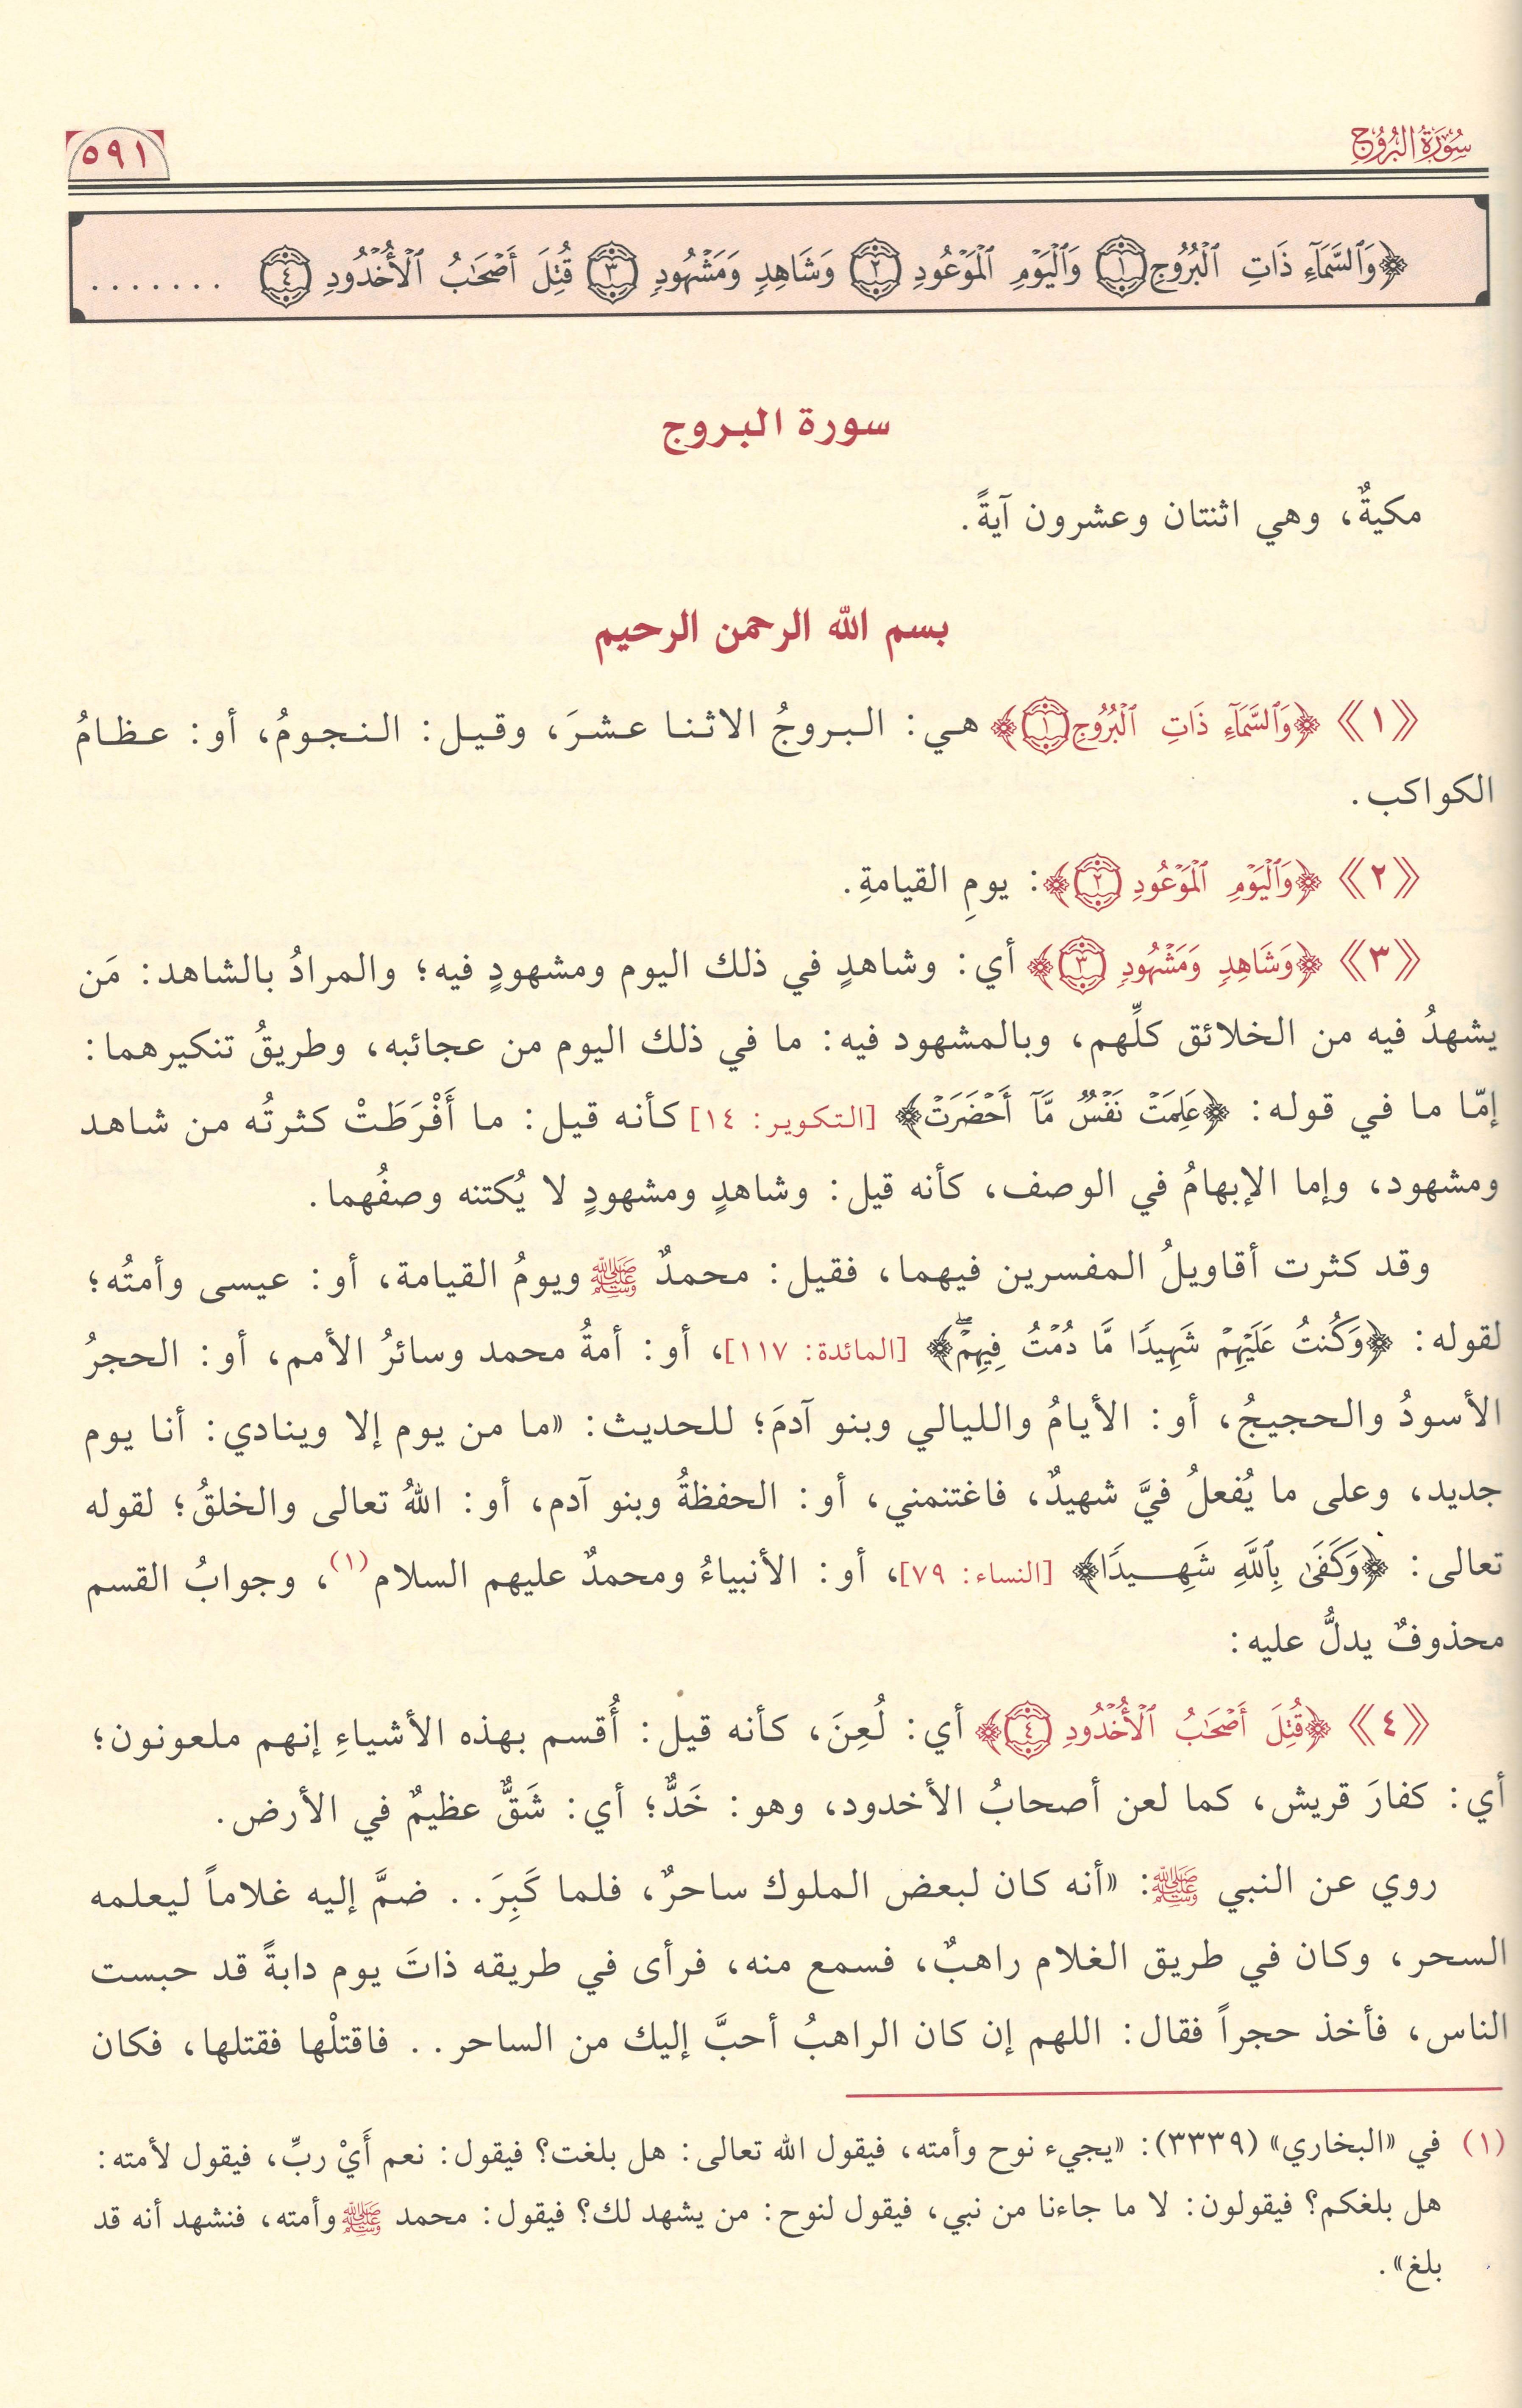 سُورَةُ البُرُوجِ
٥٩١
﴿وَٱلسَّمَآءِ ذَاتِ ٱلۡبُرُوجِ ١ وَٱلۡيَوۡمِ ٱلۡمَوۡعُودِ ٢ وَشَاهِدٖ وَمَشۡهُودٖ ٣ قُتِلَ أَصۡحَٰبُ ٱلۡأُخۡدُودِ ٤ .......
سورة البروج
مكيةٌ، وهي اثنتان وعشرون آيةً.
بسم الله الرحمن الرحيم
《١》 ﴿وَٱلسَّمَآءِ ذَاتِ ٱلۡبُرُوجِ ١﴾ هي: البروجُ الاثنا عشرَ، وقيل: النجومُ، أو: عظامُ
الكواكب.
《٢》 ﴿وَٱلۡيَوۡمِ ٱلۡمَوۡعُودِ ٢﴾: يومِ القيامةِ.
《٣》 ﴿وَشَاهِدٖ وَمَشۡهُودٖ ٣﴾ أي: وشاهدٍ في ذلك اليوم ومشهودٍ فيه؛ والمرادُ بالشاهد: مَن
يشهدُ فيه من الخلائق كلِّهم، وبالمشهود فيه: ما في ذلك اليوم من عجائبه، وطريقُ تنكيرهما:
إمّا ما في قوله: ﴿عَلِمَتۡ نَفۡسٞ مَّآ أَحۡضَرَتۡ﴾ [التكوير: ١٤] كأنه قيل: ما أَفْرَطَتْ كثرتُه من شاهد
ومشهود، وإما الإبهامُ في الوصف، كأنه قيل: وشاهدٍ ومشهودٍ لا يُكتنه وصفُهما.
وقد كثرت أقاويلُ المفسرين فيهما، فقيل: محمدٌ ﷺ ويومُ القيامة، أو: عيسى وأمتُه؛
لقوله: ﴿وَكُنتُ عَلَيۡهِمۡ شَهِيدٗا مَّا دُمۡتُ فِيهِمۡۖ﴾ [المائدة: ١١٧]، أو: أمةُ محمد وسائرُ الأمم، أو: الحجرُ
الأسودُ والحجيجُ، أو: الأيامُ والليالي وبنو آدمَ؛ للحديث: «ما من يوم إلا وينادي: أنا يوم
جديد، وعلى ما يُفعلُ فيَّ شهيدٌ، فاغتنمني، أو: الحفظةُ وبنو آدم، أو: اللهُ تعالى والخلقُ؛ لقوله
تعالى: ﴿وَكَفَىٰ بِٱللَّهِ شَهِيدٗا﴾ [النساء: ٧٩]، أو: الأنبياءُ ومحمدٌ عليهم السلام(١)، وجوابُ القسم
محذوفٌ يدلُّ عليه:
《٤》 ﴿قُتِلَ أَصۡحَٰبُ ٱلۡأُخۡدُودِ ٤﴾ أي: لُعِنَ، كأنه قيل: أُقسم بهذه الأشياءِ إنهم ملعونون؛
أي: كفارَ قريش، كما لعن أصحابُ الأخدود، وهو: خَدٌّ؛ أي: شَقٌّ عظيمٌ في الأرض.
روي عن النبي ﷺ: «أنه كان لبعض الملوك ساحرٌ، فلما كَبِرَ.. ضمَّ إليه غلاماً ليعلمه
السحر، وكان في طريق الغلام راهبٌ، فسمع منه، فرأى في طريقه ذاتَ يوم دابةً قد حبست
الناس، فأخذ حجراً فقال: اللهم إن كان الراهبُ أحبَّ إليك من الساحر.. فاقتلْها فقتلها، فكان
(١) في «البخاري» (٣٣٣٩): «يجيء نوح وأمته، فيقول الله تعالى: هل بلغت؟ فيقول: نعم أَيْ ربِّ، فيقول لأمته:
هل بلغكم؟ فيقولون: لا ما جاءنا من نبي، فيقول لنوح: من يشهد لك؟ فيقول: محمد ﷺ وأمته، فنشهد أنه قد
بلغ».